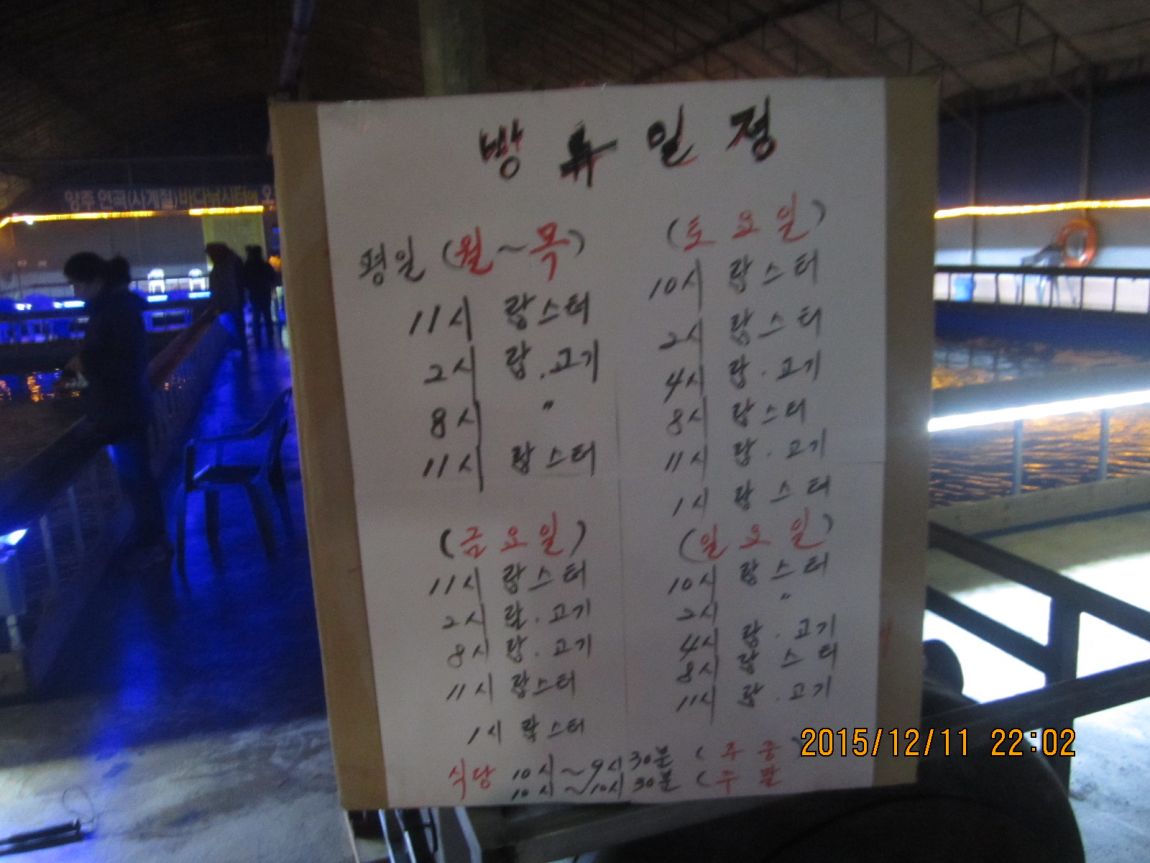 방류일정
평일 (월~목)
11시 랍스터
2시 랍.고기
8시 〃
11시 랍스터
(토요일)
10시 랍스터
2시 랍스터
4시 랍.고기
8시 랍스터
11시 랍.고기
1시 랍스터
(금요일)
11시 랍스터
2시 랍.고기
8시 랍.고기
11시 랍스터
1시 랍스터
(일요일)
10시 랍스터
2시 〃
4시 랍.고기
8시 랍스터
11시 랍.고기
식당 10시~9시30분 (주중)
10시~10시30분 (주말
양주 연곡(사계절)바다낚시터
2015/12/11 22:02